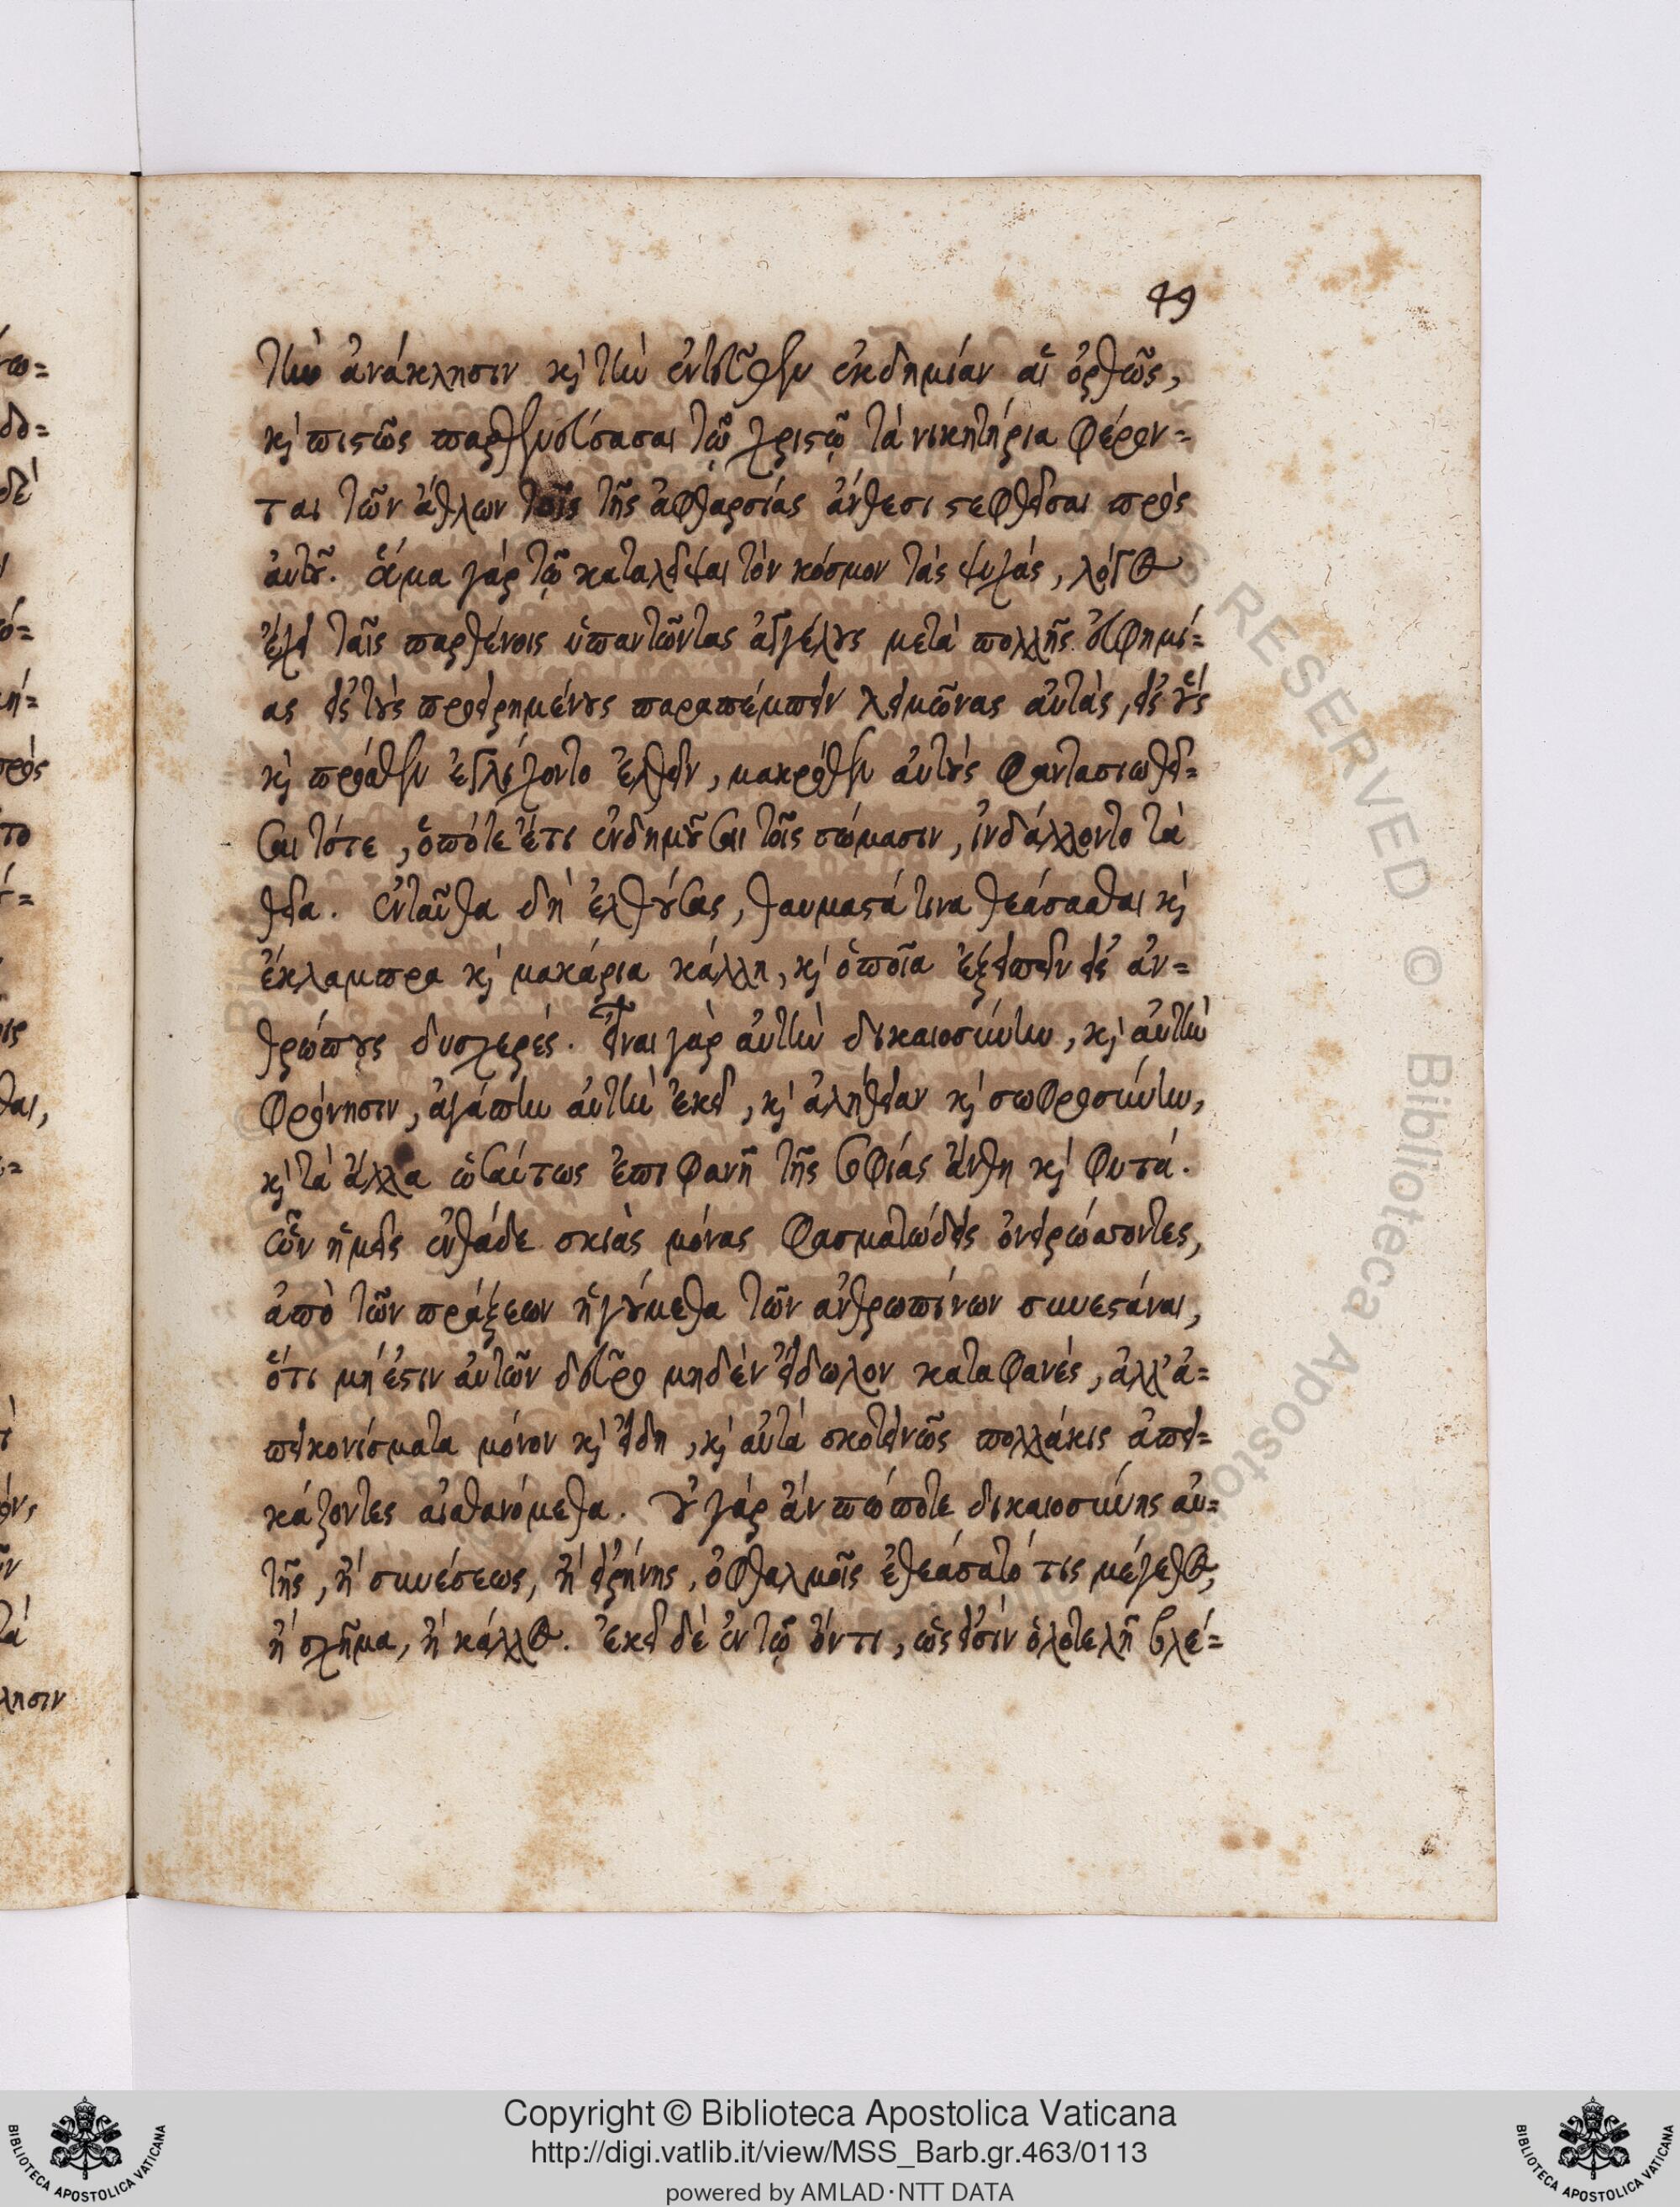 49
τὴν ἀνάκλησιν καὶ τὴν ἐντεῦθεν ἐκδημίαν αἱ ὀρθῶς,
καὶ πιστῶς παρθενεύσασαι τῷ χριστῷ τὰ νικητήρια φέρον=
ται τῶν ἄθλων τοῖς τῆς ἀφθαρσίας ἄνθεσι στεφθεῖσαι πρὸς
αὐτοῦ. ἅμα γάρ τῷ καταλεῖψαι τὸν κόσμον τὰς ψυχάς, λόγος
ἔχει ταῖς παρθένοις ὑπαντῶντας ἀγγέλους μετὰ πολλῆς εὐφημί=
ας εἰς τοὺς προειρημένους παραπέμπειν λειμῶνας αὐτὰς, εἰς οὓς
καὶ πρόσθεν ἐγλίχοντο ἐλθεῖν, μακρόθεν αὐτοὺς φαντασιωθεῖ=
σαι τότε, ὁπότε ἔτι ἐνδημοῦσαι τοῖς σώμασιν, ἰνδάλλοντο τὰ
θεῖα. ἐνταῦθα δὴ ἐλθούσας, θαυμαστά τινα θεάσασθαι καὶ
ἔκλαμπρα καὶ μακάρια κάλλη, καὶ ὁποῖα ἐξειπεῖν εἰς ἀν=
θρώπους δυσχερές. Εἶναι γὰρ αὐτὴν δικαιοσύνην, καὶ αὐτὴν
φρόνησιν, ἀγάπην αὐτὴν ἐκεῖ, καὶ ἀλήθειαν καὶ σωφροσύνην,
καὶ τὰ ἄλλα ὡσαύτως ἐπιφανῆ τῆς σοφίας ἄνθη καὶ φυτά.
ὧν ἡμεῖς ἐνθάδε σκιὰς μόνας φασματώδεις ὀνειρώσσοντες,
ἀπὸ τῶν πράξεων ἡγούμεθα τῶν ἀνθρωπίνων συνεστάναι,
ὅτι μή ἐστιν αὐτῶν δεῦρο μηδὲν εἴδωλον καταφανές, ἀλλ' ἀ=
πεικονίσματα μόνον καὶ εἴδη, καὶ αὐτὰ σκοτεινῶς πολλάκις ἀπει=
κάζοντες αἰσθανόμεθα. οὐ γάρ ἄν πώποτε δικαιοσύνης αὐ=
τῆς, ἢ συνέσεως, ἢ εἰρήνης, ὀφθαλμοῖς ἐθεάσατό τις μέγεθος,
ἢ σχῆμα, ἢ κάλλος. ἐκεῖ δὲ ἐν τῷ ὄντι, ὡς εἰσὶν ὁλοτελῆ βλέ=
Copyright © Biblioteca Apostolica Vaticana
http://digi.vatlib.it/view/MSS_Barb.gr.463/0113
powered by AMLAD·NTT DATA
BIBLIOTECA APOSTOLICA VATICANA
BIBLIOTECA APOSTOLICA VATICANA